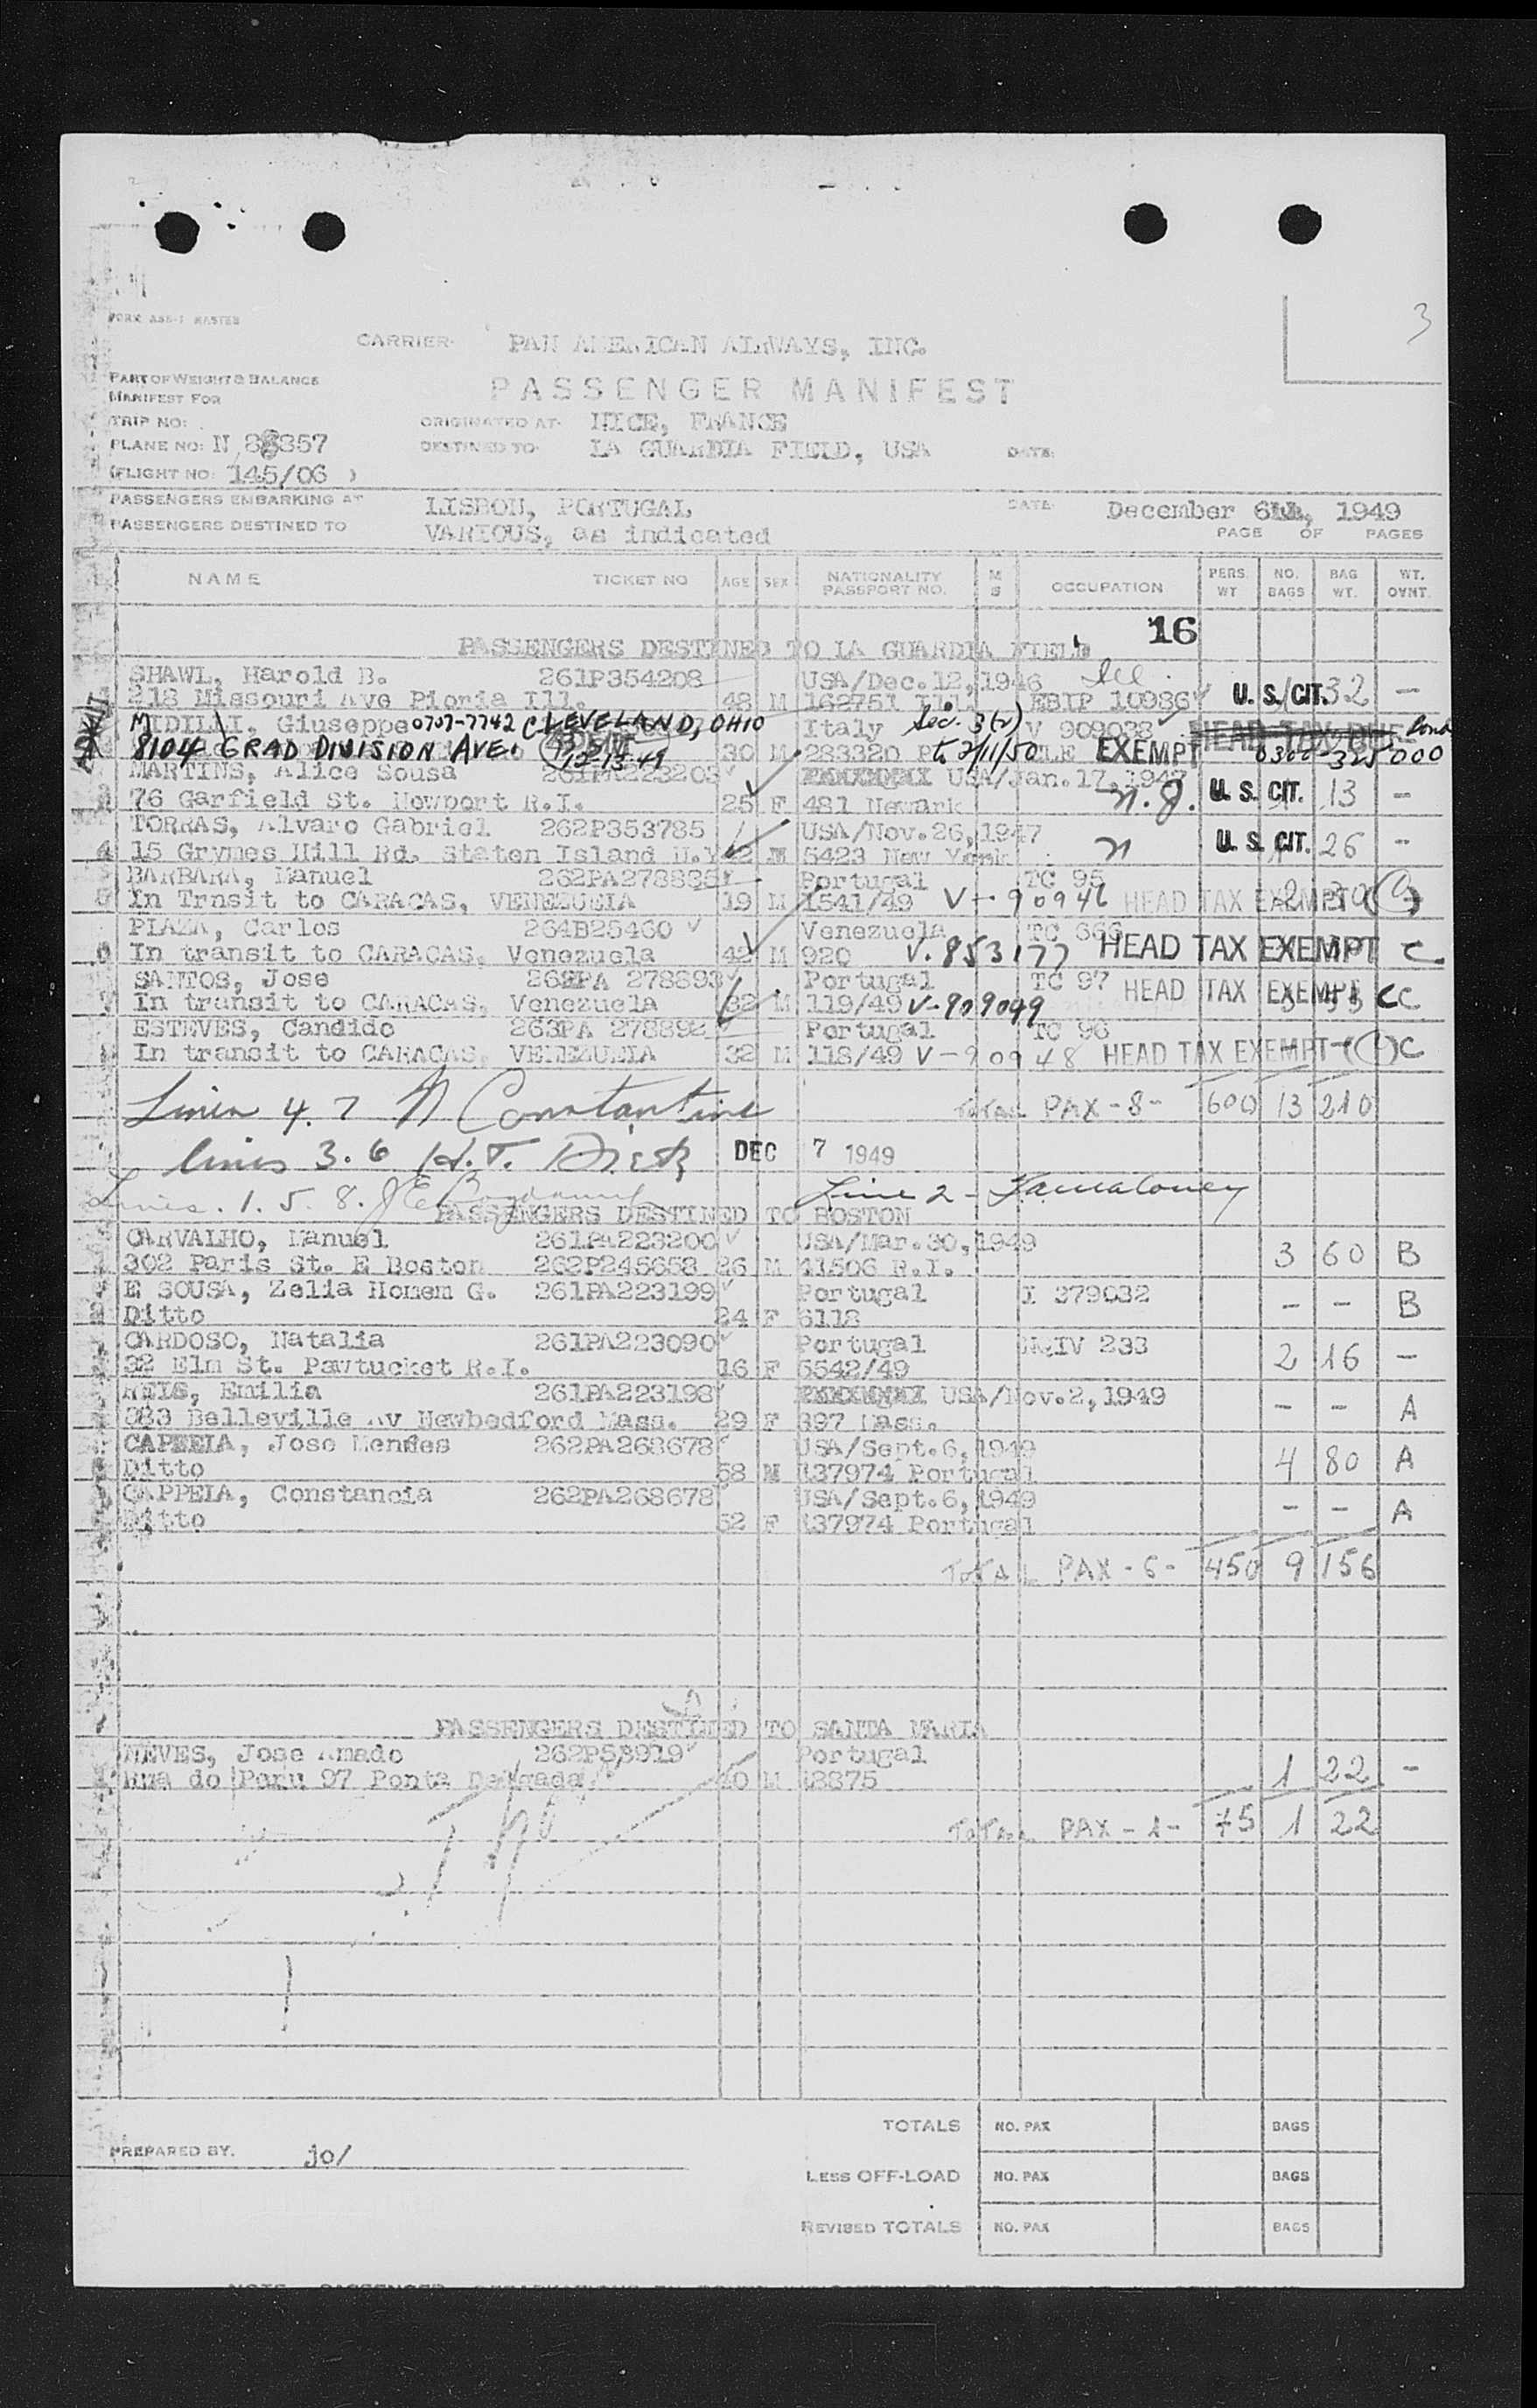 3
FORM ASB-1 MASTER
CARRIER- PAN AMERICAN AIRWAYS, INC.
PART OF WEIGHT & BALANCE
MANIFEST FOR
PASSENGER MANIFEST
TRIP NO:
ORIGINATED AT- NICE, FRANCE
PLANE NO: N 88857
DESTINED TO- LA GUARDIA FIELD, USA DATE:
(FLIGHT NO: 145/06 )
PASSENGERS EMBARKING AT LISBON, PORTUGAL DATE- December 6th, 1949
PASSENGERS DESTINED TO VARIOUS, as indicated PAGE OF PAGES
NAME TICKET NO AGE SEX NATIONALITY PASSPORT NO. M S OCCUPATION PERS. WT NO. BAGS BAG WT. WT. OVNT.
16
PASSENGERS DESTINED TO LA GUARDIA FIELD
SHAWL, Harold B. 261P354208 USA/Dec.12,1946
218 Missouri Ave Pioria Ill. 48 M 162751 EBIP 10986 U. S. CIT. 32 -
MIDILLI, Giuseppe 0707-7742 CLEVELAND, OHIO Italy Sec. 3(2) V 909038 HEAD TAX Bond
8104 GRAD DIVISION AVE. 12-13-49 30 M 283320 to 2/11/50 EXEMPT 0300-325000
MARTINS, Alice Sousa 261PA223203 USA/Jan.17,1947
76 Garfield St. Newport R.I. 25 F 481 Newark N.J. U. S. CIT. 13 -
TORRAS, Alvaro Gabriel 262P353785 USA/Nov.26,1947
4 15 Grymes Hill Rd. Staten Island N.Y 42 M 5423 New York n U. S. CIT. 26 -
BARBARA, Manuel 262PA278885 Portugal TC 95
5 In Trnsit to CARACAS, VENEZUEIA 19 M 1541/49 V-90946 HEAD TAX EXEMPT
PIAZA, Carlos 264B25460 Venezuela TC 666
6 In transit to CARACAS, Venezuela 42 M 920 V.853177 HEAD TAX EXEMPT C
SANTOS, Jose 262PA 278893 Portugal TC 97
7 In transit to CARACAS, Venezuela 32 M 119/49 V-909049 HEAD TAX EXEMPT CC
ESTEVES, Candido 263PA 278892 Portugal TC 96
8 In transit to CARACAS, VENEZUEIA 32 M 118/49 V-90948 HEAD TAX EXEMPT C
Lines 4.7 N Constantine TOTAL PAX -8- 600 13 210
lines 3.6 H.T. DEC 7 1949
Lines. 1. 5. 8. Line 2 -
PASSENGERS DESTINED TO BOSTON
CARVALHO, Manuel 261PA223200 USA/Mar.30,1949
302 Paris St. E Boston 262P245658 26 M 41506 R.I. 3 60 B
E SOUSA, Zelia Homem G. 261PA223199 Portugal I 279032
2 Ditto 24 F 6118 - - B
CARDOSO, Natalia 261PA223090 Portugal IV 233
32 Elm St. Pawtucket R.I. 16 F 5542/49 2 16 -
REIS, Emilia 261PA223198 USA/Nov.2,1949
383 Belleville Av Newbedford Mass. 29 F 397 Mass. - - A
CAPPEIA, Jose Mendes 262PA268678 USA/Sept.6,1949
Ditto 58 M 137974 Portugal 4 80 A
CAPPEIA, Constancia 262PA268678 USA/Sept.6,1949
Ditto 52 F 137974 Portugal - - A
TOTAL PAX -6- 450 9 156
PASSENGERS DESTINED TO SANTA MARIA
NEVES, Jose Amado 262P58919 Portugal
Rua do Peru 97 Ponta Delgada 40 M 13875 1 22 -
TOTAL PAX -1- 75 1 22
TOTALS NO. PAX BAGS
PREPARED BY. jo/
LESS OFF-LOAD NO. PAX BAGS
REVISED TOTALS NO. PAX BAGS